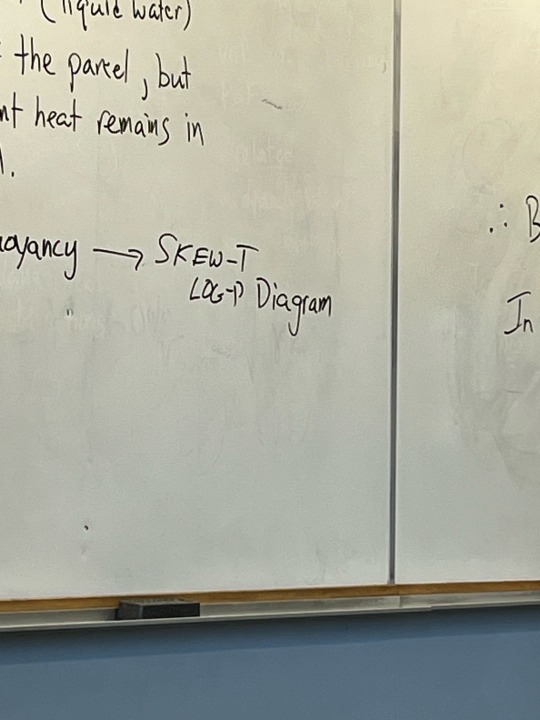 (liquid water)
the parcel, but
nt heat remains in
oyancy → SKEW-T
LOG-P Diagram
∴ B
In